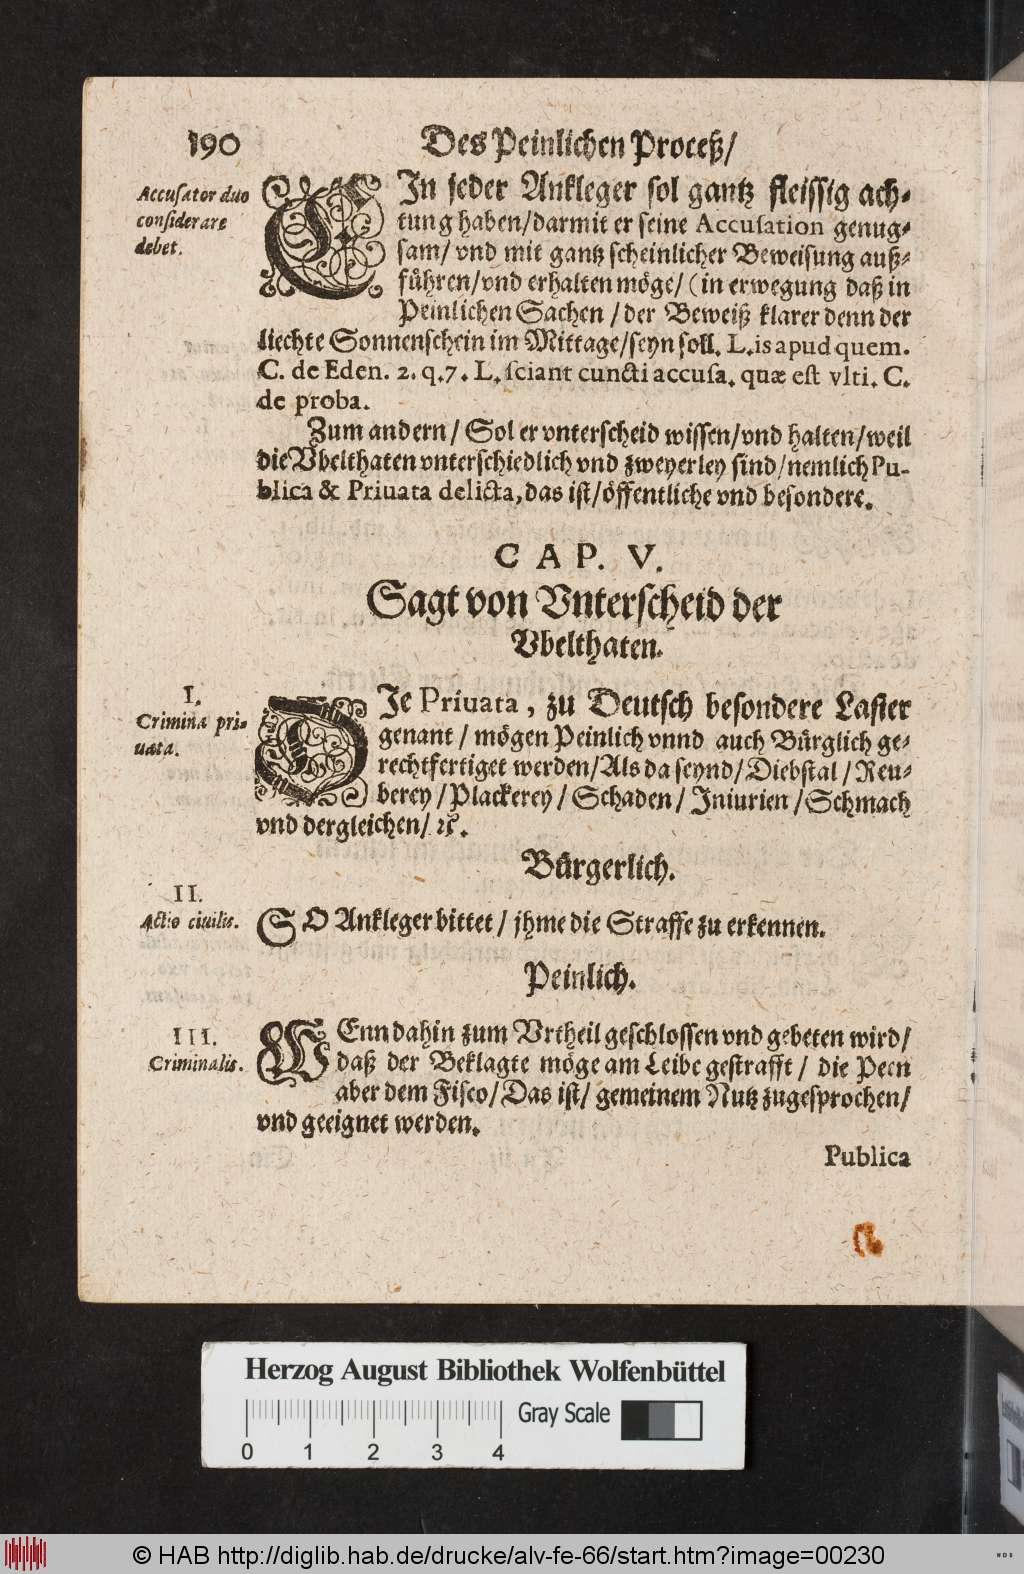 190 Des Peinlichen Proceß/
Accusator duo
considerare
debet.
EIn jeder Ankleger sol gantz fleissig ach-
tung haben/darmit er seine Accusation genug-
sam/ vnd mit gantz scheinlicher Beweisung auß-
führen/vnd erhalten möge/ (in erwegung daß in
Peinlichen Sachen / der Beweiß klarer denn der
liechte Sonnenschein im Mittage/seyn soll. L. is apud quem.
C. de Eden. 2. q. 7. L. sciant cuncti accusa. quæ est vlti. C.
de proba.
Zum andern / Sol er vnterscheid wissen/vnd halten/weil
die Vbelthaten vnterschiedlich vnd zweyerley sind/nemlich Pu-
blica & Priuata delicta, das ist/öffentliche vnd besondere.
CAP. V.
Sagt von Vnterscheid der
Vbelthaten.
I.
Crimina pri-
uata.
DIe Priuata, zu Deutsch besondere Laster
genant / mögen Peinlich vnnd auch Bürglich ge-
rechtfertiget werden/Als da seynd/Diebstal / Reu-
berey / Plackerey / Schaden / Iniurien / Schmach
vnd dergleichen/ ꝛc.
Bürgerlich.
II.
Actio ciuilis.
SO Ankleger bittet / jhme die Straffe zu erkennen.
Peinlich.
III.
Criminalis.
WEnn dahin zum Vrtheil geschlossen vnd gebeten wird/
daß der Beklagte möge am Leibe gestrafft / die Peen
aber dem Fisco/ Das ist/ gemeinem Nutz zugesprochen/
vnd geeignet werden.
Publica
Herzog August Bibliothek Wolfenbüttel
Gray Scale
0 1 2 3 4
© HAB http://diglib.hab.de/drucke/alv-fe-66/start.htm?image=00230